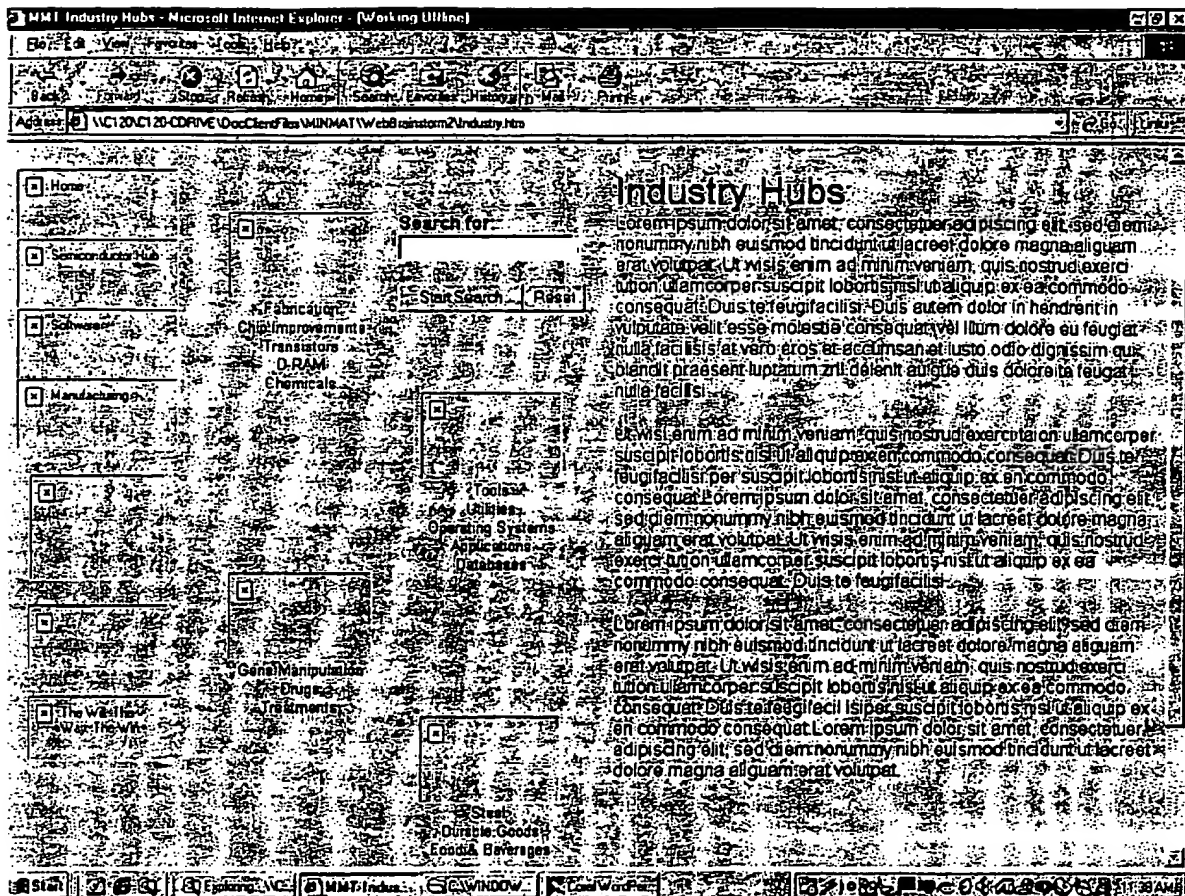 MMT Industry Hubs - Microsoft Internet Explorer - [Working Offline]
File Edit View Favorites Tools Help
Back Forward Stop Refresh Home Search Favorites History Mail Print
Address \\C120\C120-CDRIVE\DocClientFiles\MINMAT\WebBrainstorm2\Industry.htm Go Links
Home
Semiconductor Hub
Software
Manufacturing
Fabrication
Chip Improvements
Transistors
D-RAM
Chemicals
Search for:
Start Search Reset
Tools
Utilities
Operating Systems
Applications
Databases
Gene Manipulation
Drugs
Treatments
Steel
Durable Goods
Food & Beverages
Industry Hubs
Lorem ipsum dolor sit amet, consectetuer adipiscing elit, sed diem
nonummy nibh euismod tincidunt ut lacreet dolore magna aliguam
erat volutpat. Ut wisis enim ad minim veniam, quis nostrud exerci
tution ullamcorper suscipit lobortis nisl ut aliquip ex ea commodo
consequat. Duis te feugifacilisi. Duis autem dolor in hendrerit in
vulputate velit esse molestie consequat, vel illum dolore eu feugiat
nulla facilisis at vero eros et accumsan et iusto odio dignissim qui
blandit praesent luptatum zril delenit au gue duis dolore te feugat
nulla facilisi.
Ut wisi enim ad minim veniam, quis nostrud exerci taion ullamcorper
suscipit lobortis nisl ut aliquip ex en commodo consequat. Duis te
feugifacilisi per suscipit lobortis nisl ut aliquip ex en commodo
consequat. Lorem ipsum dolor sit amet, consectetuer adipiscing elit,
sed diem nonummy nibh euismod tincidunt ut lacreet dolore magna
aliguam erat volutpat. Ut wisis enim ad minim veniam, quis nostrud
exerci tution ullamcorper suscipit lobortis nisl ut aliquip ex ea
commodo consequat. Duis te feugifacilisi.
Lorem ipsum dolor sit amet, consectetuer adipiscing elit, sed diem
nonummy nibh euismod tincidunt ut lacreet dolore magna aliguam
erat volutpat. Ut wisis enim ad minim veniam, quis nostrud exerci
tution ullamcorper suscipit lobortis nisl ut aliquip ex ea commodo
consequat. Duis te feugifacil isiper suscipit lobortis nisl ut aliquip ex
en commodo consequat. Lorem ipsum dolor sit amet, consectetuer
adipiscing elit, sed diem nonummy nibh euismod tincidunt ut lacreet
dolore magna aliguam erat volutpat.
Start Exploring MMT Indus... C:\WINDOW... Corel WordPer...